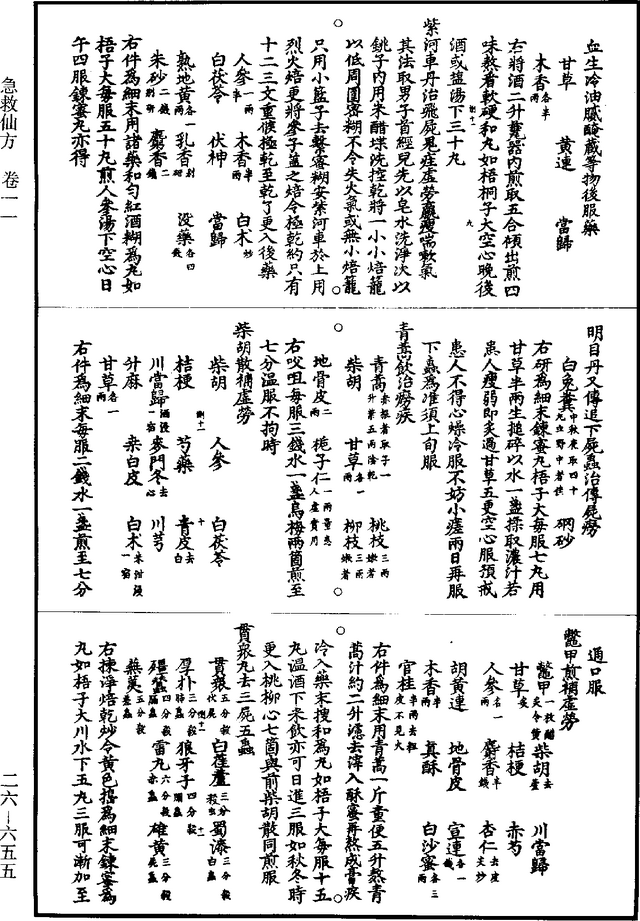 急救仙方 卷一一
二六—六五五
血生冷油膩酸鹹等物後服藥
甘草 黃連 當歸
木香各半兩
右將酒二升甆器內煎取五合傾出煎四
味熬着軟硬和丸如梧桐子大空心晚後
酒或鹽湯下三十九
紫河車丹治飛屍鬼疰虛勞羸瘦喘嗽氣
其法取男子首經兒先以皂水洗淨次以
銚子內用米醋煠洗控乾將一小小焙籠
以低周圍密糊不令失火氣或無小焙籠
只用小籃子去繫密糊安紫河車於上用
烈火焙更將麥子蓋之焙令極乾約只有
十二三文重候極乾至乾了更入後藥
人參一兩半 木香半兩 白朮炒
白茯苓 伏神 當歸
熟地黃各一兩 乳香別 沒藥各四錢
朱砂二錢別研 麝香二錢
右件為細末用諸藥和勻紅酒糊為丸如
梧子大每服五十丸煎人參湯下空心日
午四服鍊蜜丸亦得
明目丹又傳追下屍蟲治傳屍癆
白兔糞 硇砂
右研為細末鍊蜜丸梧子大每服七丸用
甘草半兩生搥碎以水一盞揉取濃汁若
患人瘦弱即炙過甘草五更空心服預戒
患人不得心燥冷服不妨小痓兩日再服
下蟲為准須上旬服
青蒿飲治癆疾
青蒿 桃枝三兩嫩者
柴胡 甘草各一兩 柳枝三兩嫩者
地骨皮二兩 梔子仁一兩
右㕮咀每服三錢水一盞烏梅兩箇煎至
七分溫服不拘時
柴胡散補虛勞
柴胡 人參 白茯苓
桔梗 芍藥 青皮去白
川當歸酒浸一宿 麥門冬去心 川芎
升麻 桒白皮 白朮米泔浸一宿
甘草各一兩
右件為細末每服二錢水一盞煎至七分
通口服
鱉甲煎補虛勞
鱉甲 柴胡去蘆 川當歸
甘草炙 桔梗 赤芍
人參各一兩 麝香半錢 杏仁去皮尖炒
胡黃連 地骨皮 宣連各一錢
木香半兩 真酥 白沙蜜各三兩
官桂半兩去麁皮不見火
右件為細末用青蒿一斤童便五升熬青
蒿汁約二升濾去滓入酥蜜再熬成膏疾
冷入藥末搜和為丸如梧子大每服十五
丸溫酒下米飲亦可日進三服如秋冬時
更入桃柳心七箇與前柴胡散同煎服
貫衆丸去三屍五蟲
貫衆 白雚蘆 蜀漆三分
厚朴三分 狼牙子四分
殭蠶四分 雷丸六分 雄黃三分
蕪荑五分
右揀淨焙乾炒令黃色搗為細末鍊蜜為
丸如梧子大川水下五丸三服可漸加至